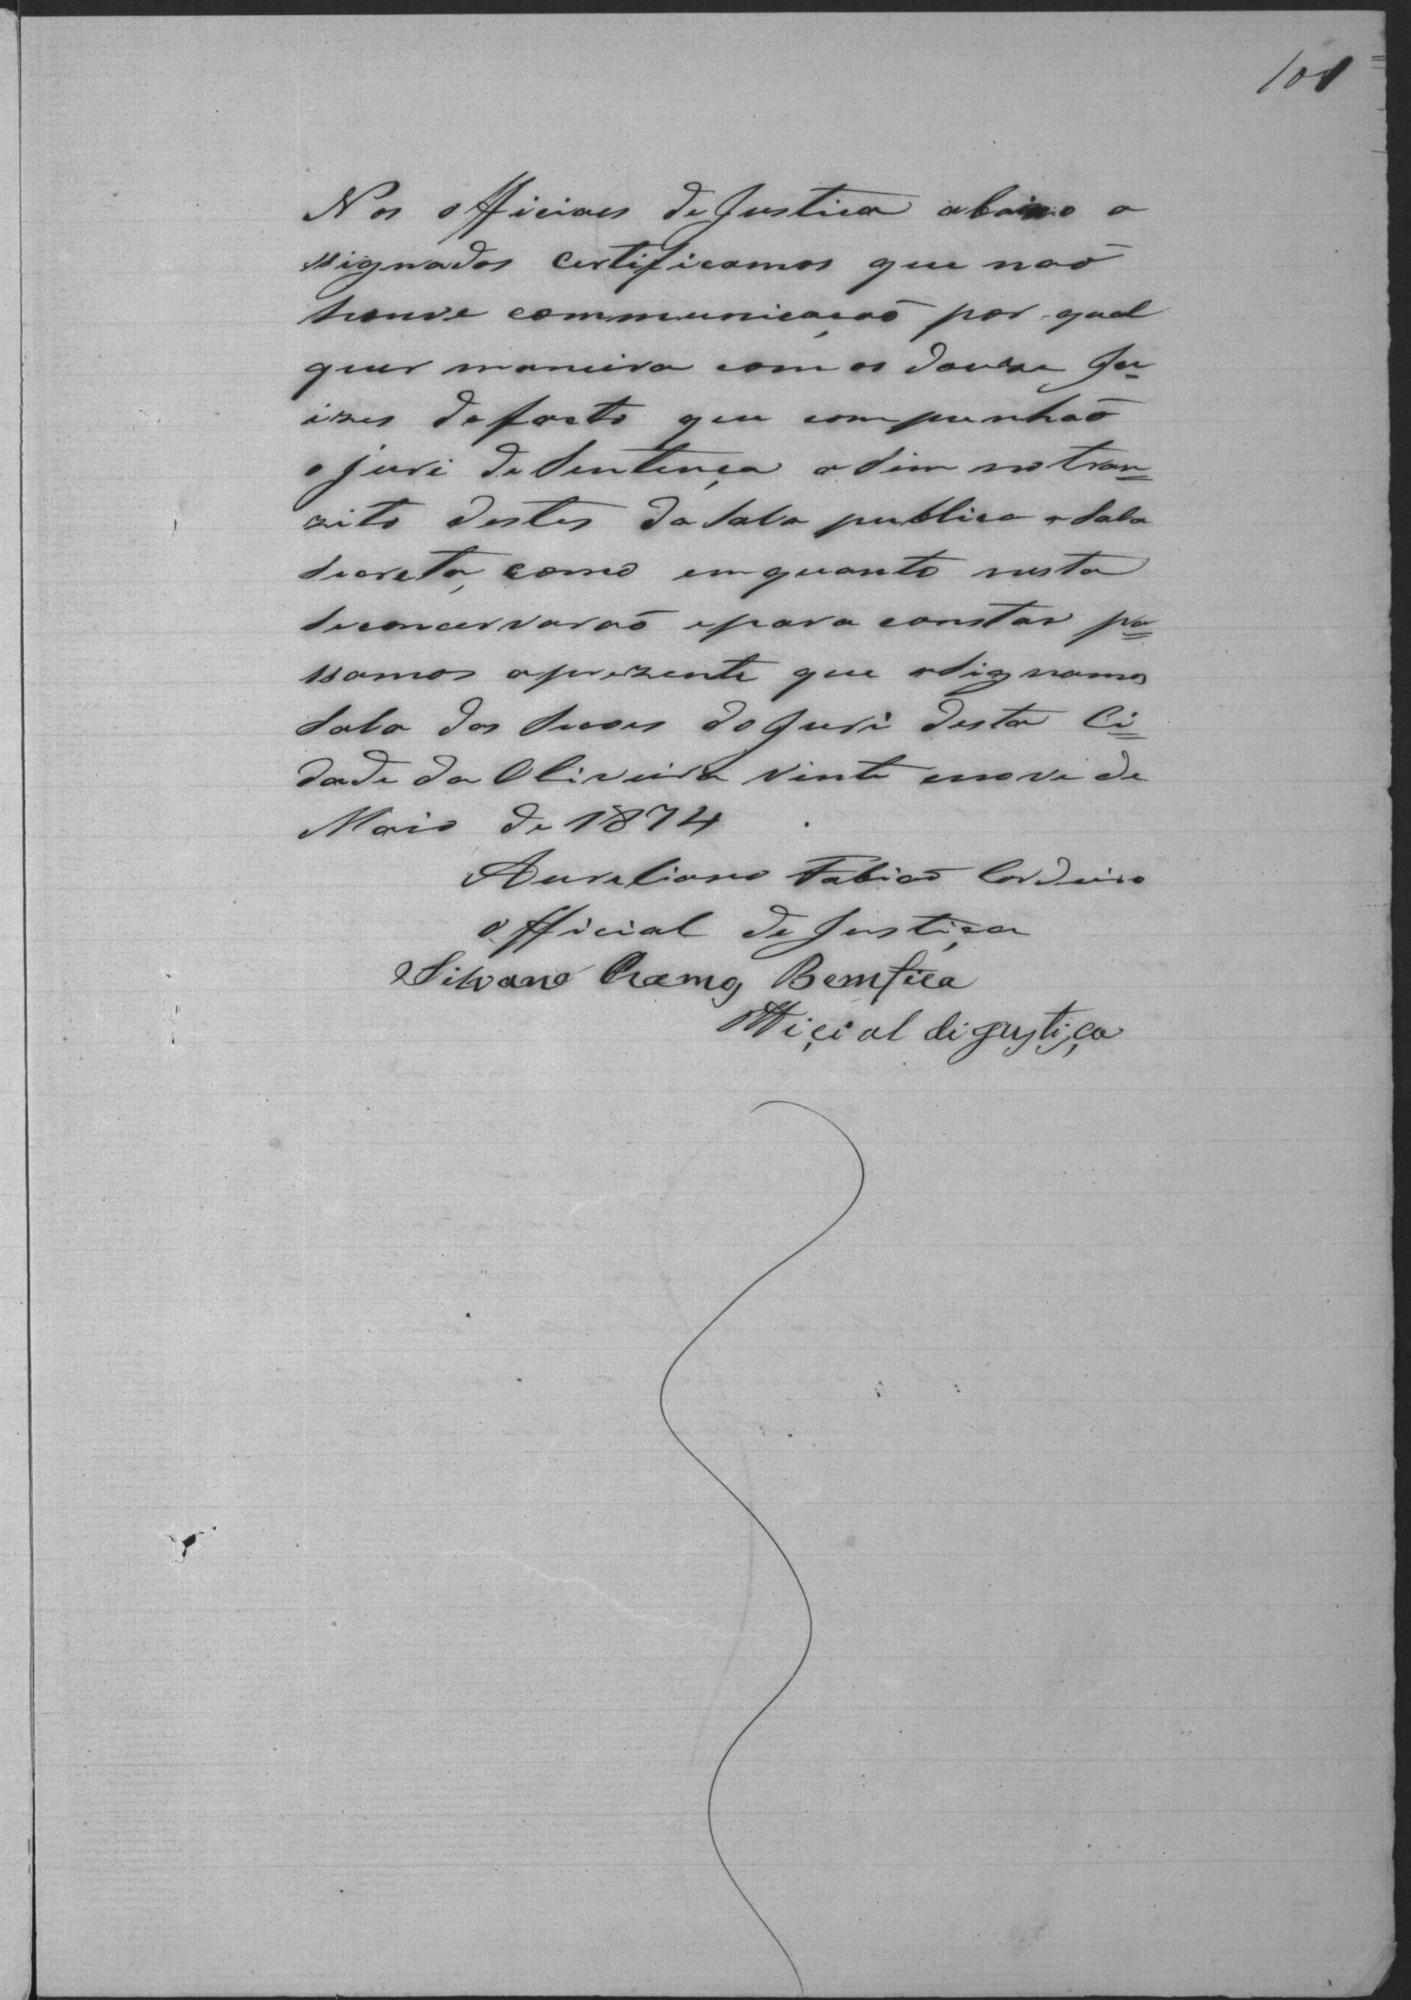 101
Nos officiaes de Justica abaixo a
ssignados certificamos que naõ
houve communicaçaõ por qual
quer maneira com os douze Ju-
izes de facto que compunhaõ
o juri de Sentença a Sim no tran=
zito destes da Sala publica a Sala
Secreta, como em quanto nesta
Seconcervaraõ epara constar pa=
ssamos aprezente que aSignamos
Sala das Secoes do Juri desta Ci=
dade da Oliveira vinte enove de
Maio de 1874
Aureliano Fabiaõ Cordeiro
official de Justiça
Silvano Bemfica
Official di Justiça